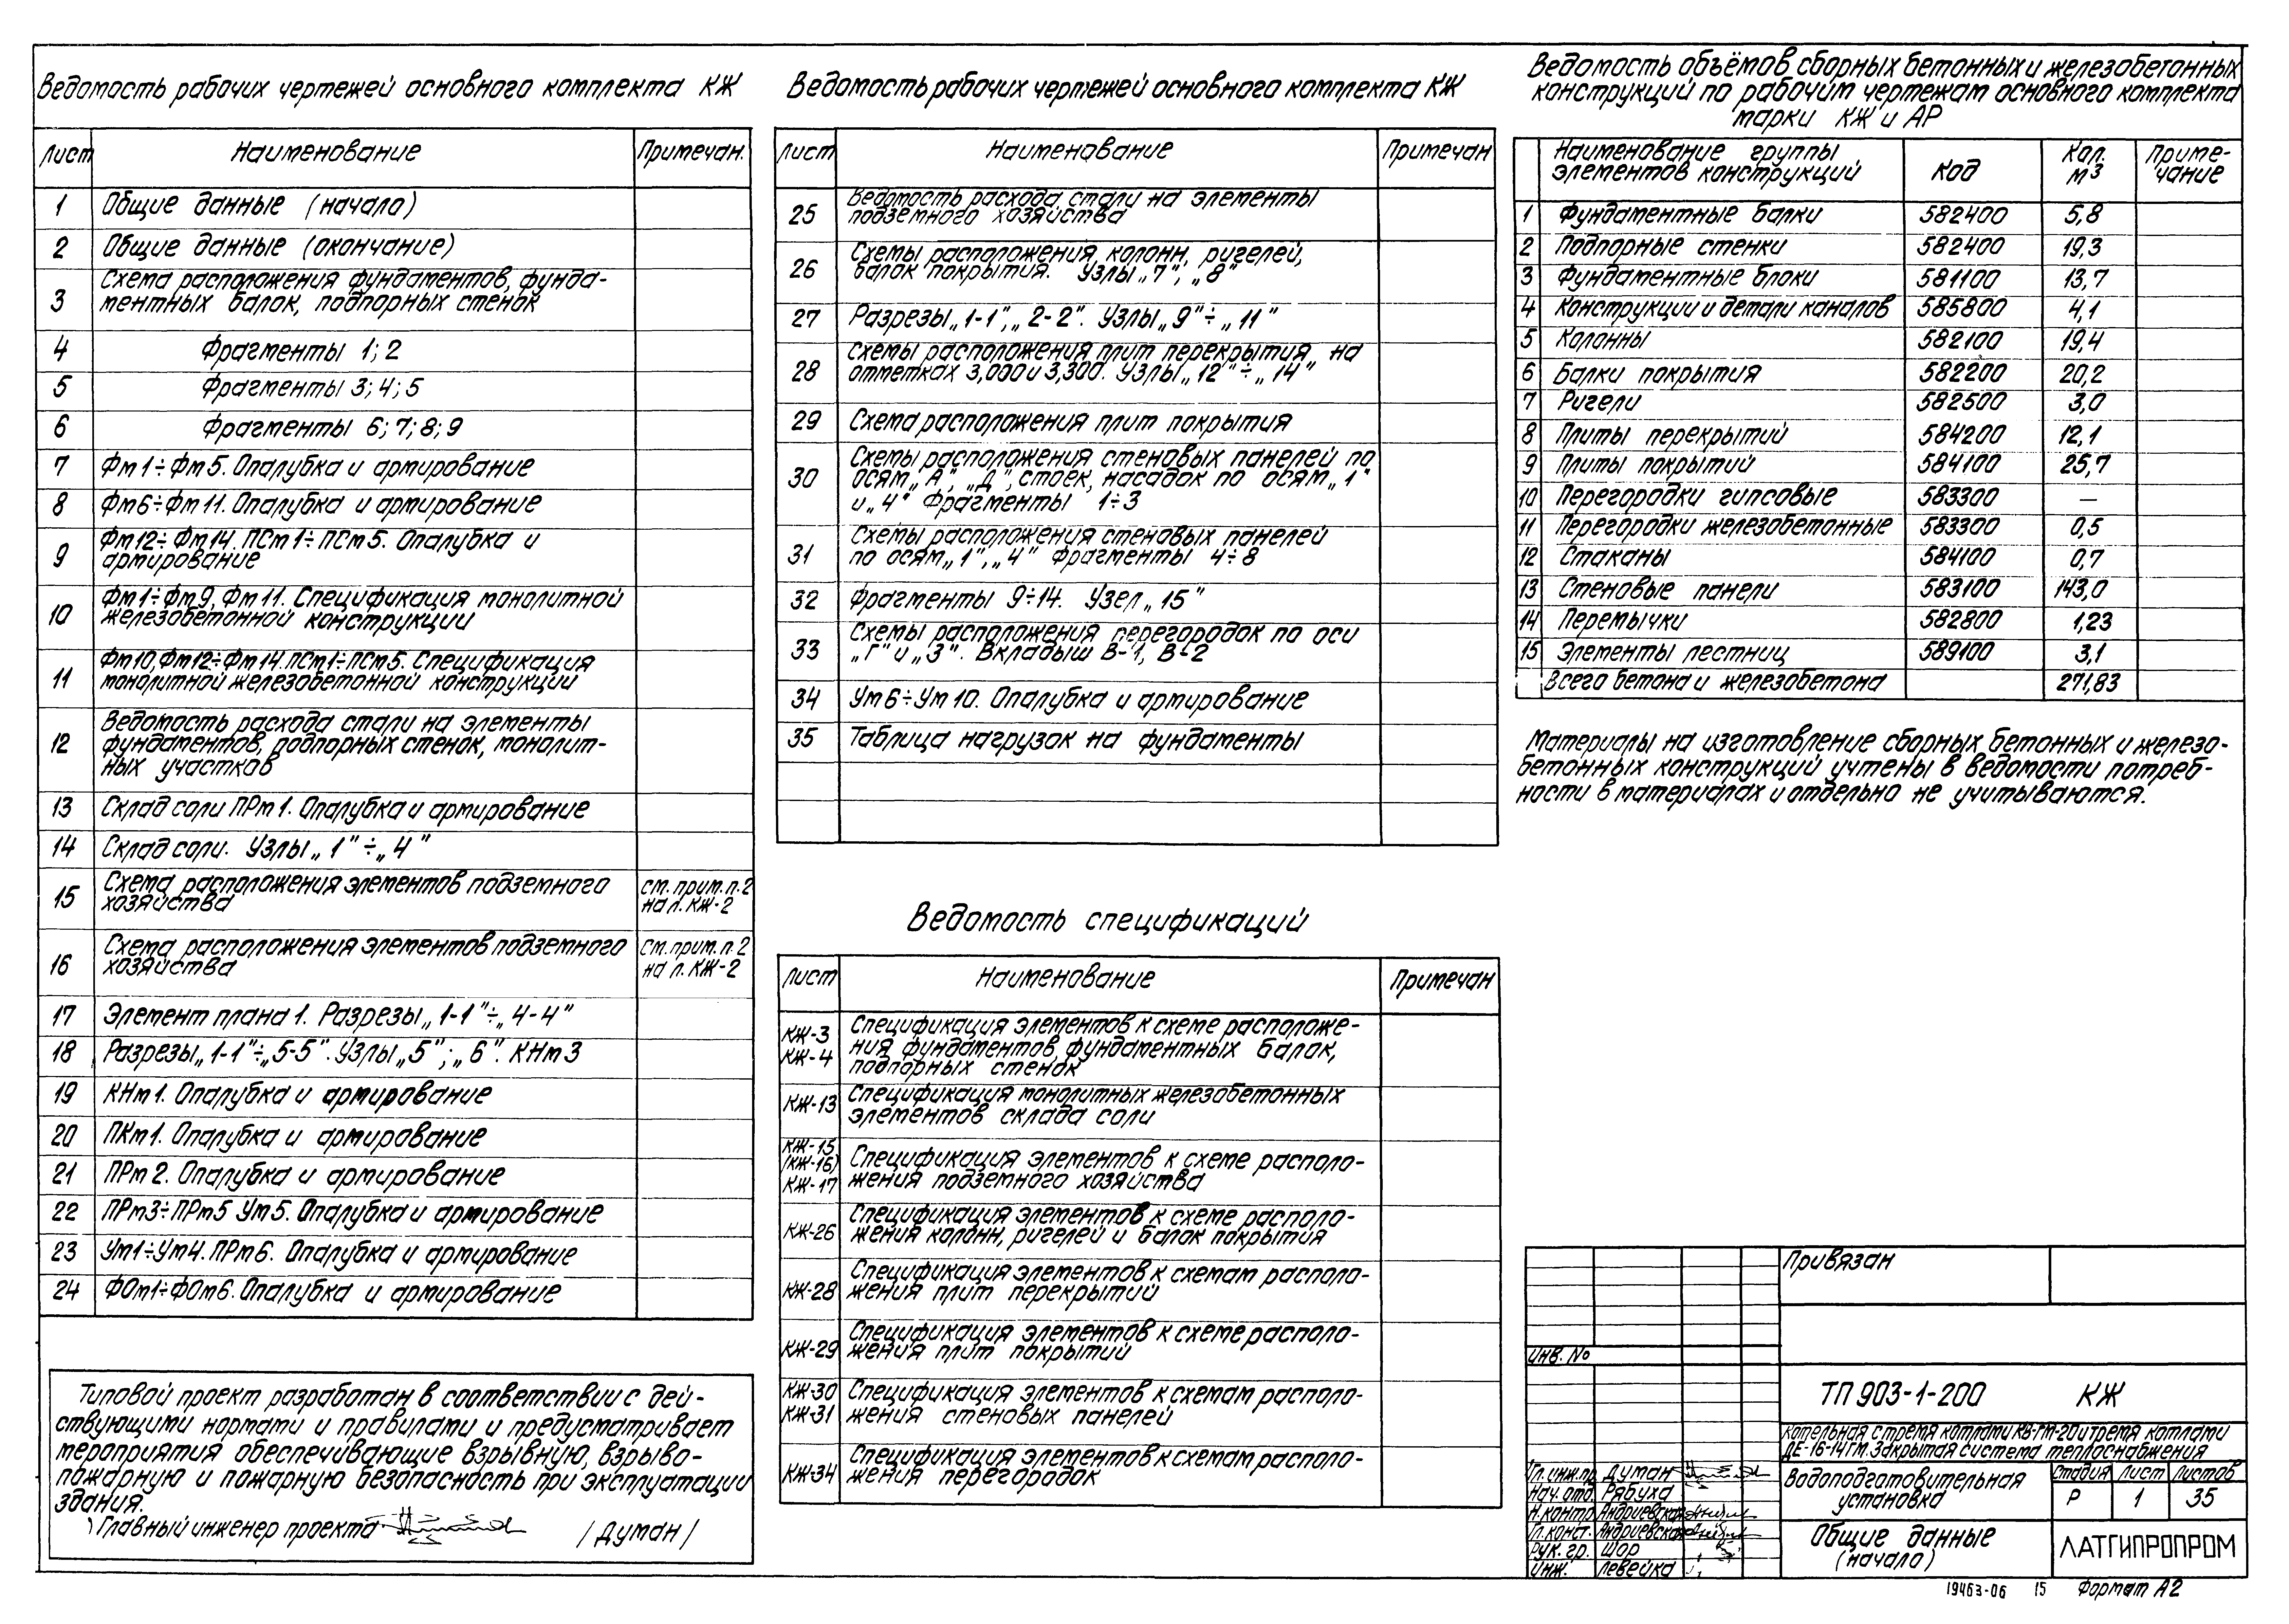 Ведомость рабочих чертежей основного комплекта КЖ
Лист Наименование Примечан.
1 Общие данные (начало)
2 Общие данные (окончание)
3 Схема расположения фундаментов, фунда-
ментных балок, подпорных стенок
4 Фрагменты 1; 2
5 Фрагменты 3; 4; 5
6 Фрагменты 6; 7; 8; 9
7 Фм1÷Фм5. Опалубка и армирование
8 Фм6÷Фм11. Опалубка и армирование
9 Фм12÷Фм14. ПСм1÷ПСм5. Опалубка и
армирование
10 Фм1÷Фм9, Фм11. Спецификация монолитной
железобетонной конструкции
11 Фм10, Фм12÷Фм14. ПСм1÷ПСм5. Спецификация
монолитной железобетонной конструкций
12 Ведомость расхода стали на элементы
фундаментов, подпорных стенок, монолит-
ных участков
13 Склад соли ПРм1. Опалубка и армирование
14 Склад соли. Узлы „1"÷„4"
15 Схема расположения элементов подземного
хозяйства
см. прим. п. 2
на л. КЖ-2
16 Схема расположения элементов подземного
хозяйства
см. прим. п. 2
на л. КЖ-2
17 Элемент плана 1. Разрезы „1-1"÷„4-4"
18 Разрезы „1-1"÷„5-5". Узлы „5"; „6". КНм3
19 КНм1. Опалубка и армирование
20 ПКм1. Опалубка и армирование
21 ПРм2. Опалубка и армирование
22 ПРм3÷ПРм5 Ум5. Опалубка и армирование
23 Ум1÷Ум4. ПРм6. Опалубка и армирование
24 ФОм1÷ФОм6. Опалубка и армирование
Типовой проект разработан в соответствии с дей-
ствующими нормами и правилами и предусматривает
мероприятия обеспечивающие взрывную, взрыво-
пожарную и пожарную безопасность при эксплуатации
здания.
Главный инженер проекта /Думан/
Ведомость рабочих чертежей основного комплекта КЖ
Лист Наименование Примечан
25 Ведомость расхода стали на элементы
подземного хозяйства
26 Схемы расположения колонн, ригелей,
балок покрытия. Узлы „7", „8"
27 Разрезы „1-1", „2-2". Узлы „9"÷„11"
28 Схемы расположения плит перекрытия на
отметках 3,000 и 3,300. Узлы „12"÷„14"
29 Схема расположения плит покрытия
30 Схемы расположения стеновых панелей по
осям „А", „Д", стоек, насадок по осям „1"
и „4" Фрагменты 1÷3
31 Схемы расположения стеновых панелей
по осям „1", „4" Фрагменты 4÷8
32 Фрагменты 9÷14. Узел „15"
33 Схемы расположения перегородок по оси
„Г" и „3". Вкладыш В-1, В-2
34 Ум6÷Ум10. Опалубка и армирование
35 Таблица нагрузок на фундаменты
Ведомость спецификаций
Лист Наименование Примечан
КЖ-3
КЖ-4
Спецификация элементов к схеме расположе-
ния фундаментов, фундаментных балок,
подпорных стенок
КЖ-13 Спецификация монолитных железобетонных
элементов склада соли
КЖ-15
(КЖ-16)
КЖ-17
Спецификация элементов к схеме располо-
жения подземного хозяйства
КЖ-26 Спецификация элементов к схеме располо-
жения колонн, ригелей и балок покрытия
КЖ-28 Спецификация элементов к схемам располо-
жения плит перекрытий
КЖ-29 Спецификация элементов к схеме располо-
жения плит покрытий
КЖ-30
КЖ-31
Спецификация элементов к схемам располо-
жения стеновых панелей
КЖ-34 Спецификация элементов к схемам располо-
жения перегородок
Ведомость объёмов сборных бетонных и железобетонных
конструкций по рабочим чертежам основного комплекта
марки КЖ и АР
Наименование группы
элементов конструкций
Код
Кол.
м3
Приме-
чание
1 Фундаментные балки 582400 5,8
2 Подпорные стенки 582400 19,3
3 Фундаментные блоки 581100 13,7
4 Конструкции и детали каналов 585800 4,1
5 Колонны 582100 19,4
6 Балки покрытия 582200 20,2
7 Ригели 582500 3,0
8 Плиты перекрытий 584200 12,1
9 Плиты покрытий 584100 25,7
10 Перегородки гипсовые 583300 —
11 Перегородки железобетонные 583300 0,5
12 Стаканы 584100 0,7
13 Стеновые панели 583100 143,0
14 Перемычки 582800 1,23
15 Элементы лестниц 589100 3,1
Всего бетона и железобетона 271,83
Материалы на изготовление сборных бетонных и железо-
бетонных конструкций учтены в ведомости потреб-
ности в материалах и отдельно не учитываются.
Привязан
Инв. №
ТП 903-1-200 КЖ
Котельная с тремя котлами КВ-ГМ-20 и тремя котлами
ДЕ-16-14ГМ. Закрытая система теплоснабжения
Гл. инж. пр. Думан
Нач. отд. Рябуха
Н. контр. Андриевская
Гл. конст. Андриевская
Рук. гр. Шор
Инж. Левейка
Водоподготовительная
установка
Стадия Лист Листов
Р 1 35
Общие данные
(начало)
ЛАТГИПРОПРОМ
19463-06 15 Формат А2